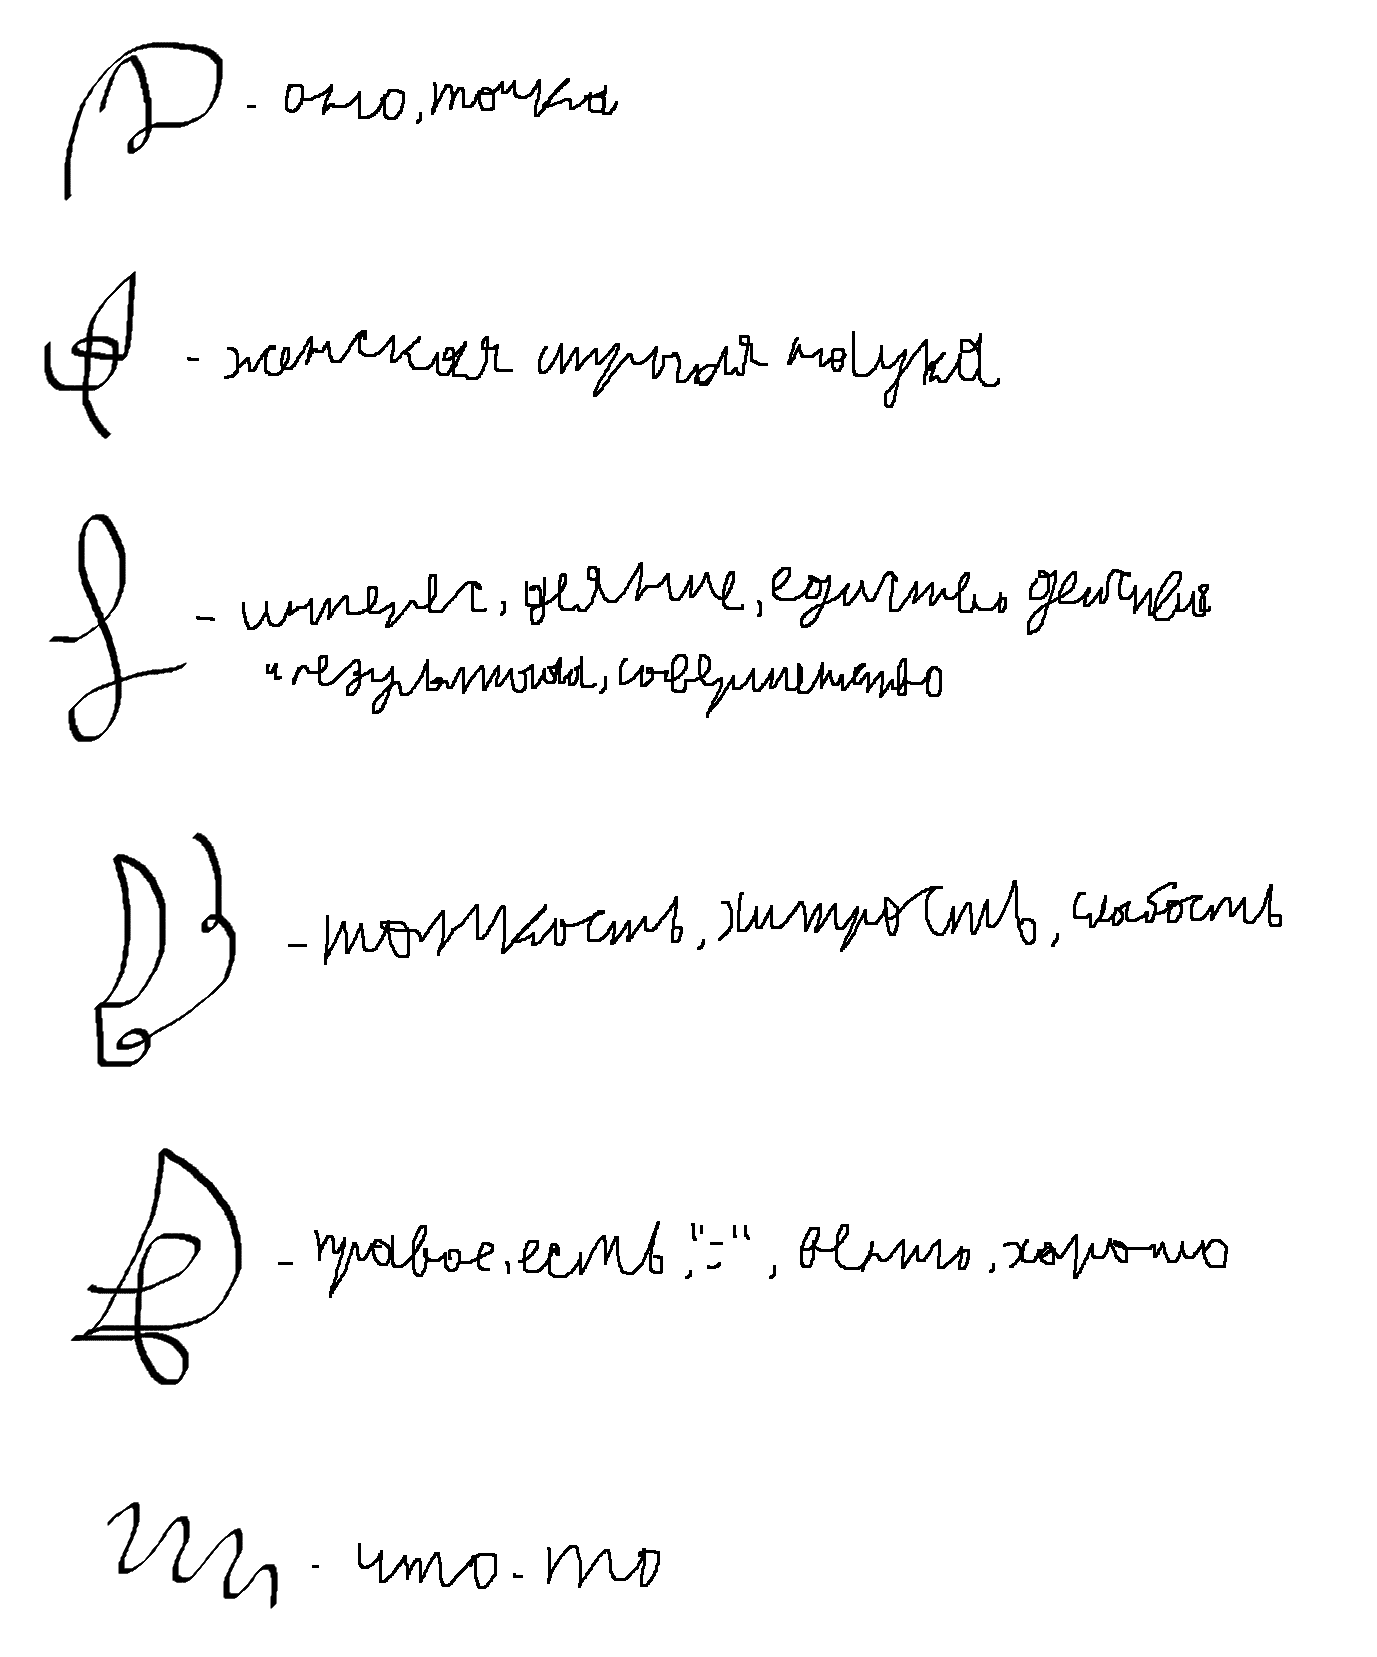 - оно, точка
- женская
- интерес, деяние, единство действия
и результата, совершенство
- тонкость, хитрость, слабость
- правое, есть, "=", вечно, хорошо
- что-то